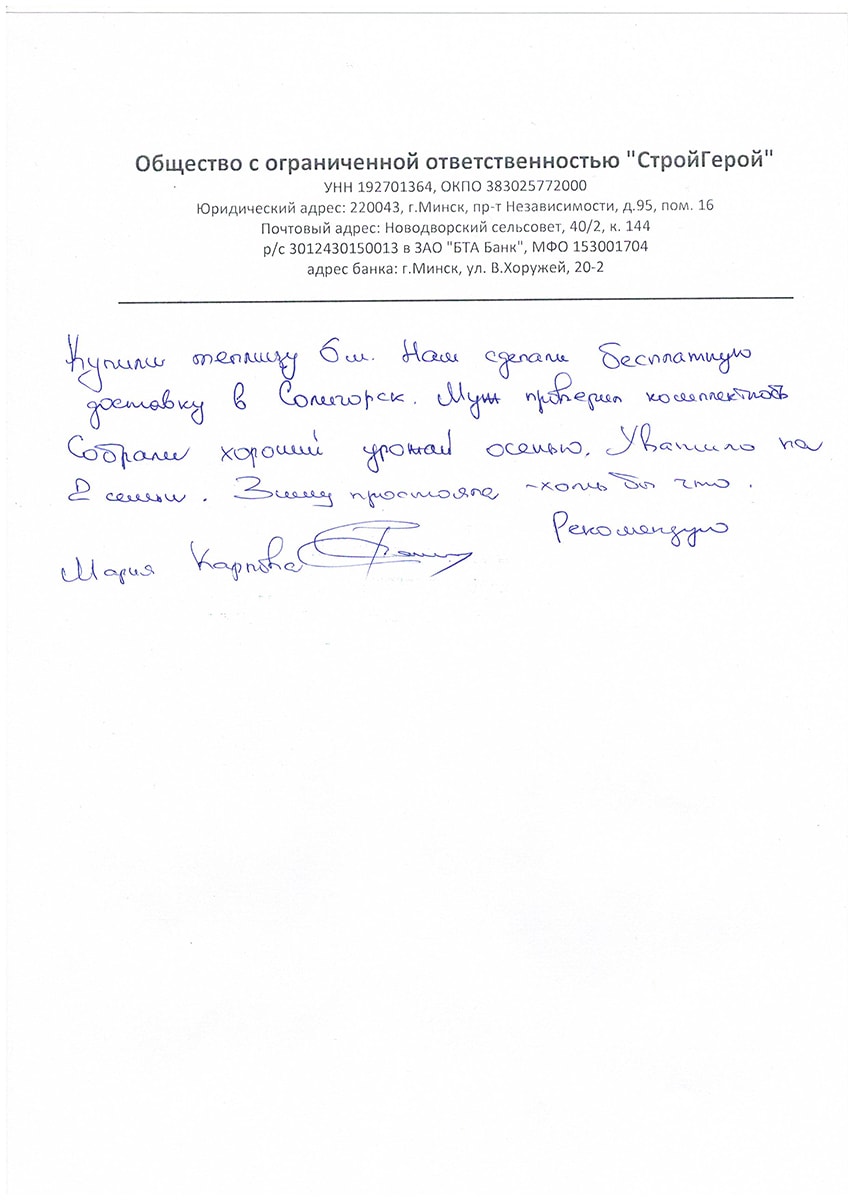 Общество с ограниченной ответственностью "СтройГерой"
УНН 192701364, ОКПО 383025772000
Юридический адрес: 220043, г.Минск, пр-т Независимости, д.95, пом. 16
Почтовый адрес: Новодворский сельсовет, 40/2, к. 144
р/с 3012430150013 в ЗАО "БТА Банк", МФО 153001704
адрес банка: г.Минск, ул. В.Хоружей, 20-2
Купили теплицу 6м. Нам сделали бесплатную
доставку в Солигорск. Муж проверил комплектность
Собрали хороший урожай осенью. Хватило на
2 семьи. Зиму простояла - хоть бы что.
Рекомендую
Мария Карпова